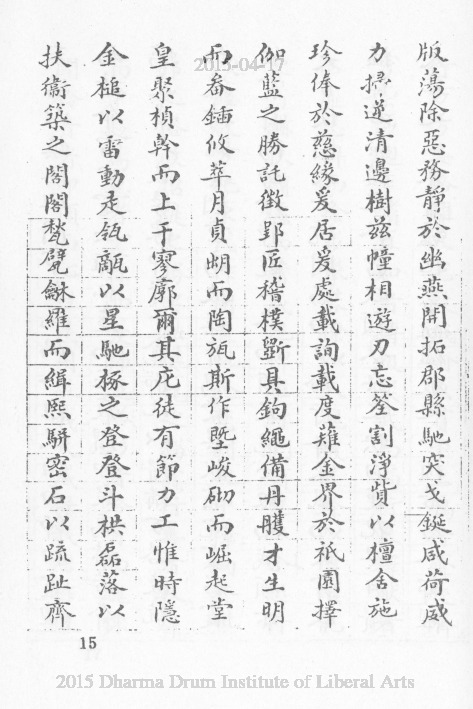 版蕩除惡務靜於幽燕開拓郡縣馳突戈鋋咸荷威
力掃逆清邊樹茲幢相遊刃忘筌割淨貲以檀舍施
珍俸於慈緣爰居爰處載詢載度薙金界於祇園擇
伽藍之勝託徵郢匠稽樸斲具鉤繩備丹雘才生明
而畚鍤攸萃月貞朙而陶瓬斯作塈峻砌而崛起堂
皇聚楨幹而上干寥廓爾其庀徒有節力工惟時隱
金槌以雷動走瓴甋以星馳椓之登登斗栱磊落以
扶衞築之閣閣甃甓龢羅而緝熙駢密石以疏趾齊
15
2015-04-17
2015 Dharma Drum Institute of Liberal Arts